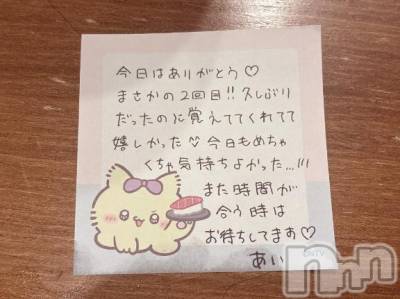 今日はありがとう♡
まさかの2回目!!久しぶり
だったのに覚えててくれてて
嬉しかった♡今日もめちゃ
くちゃ気持ちよかった...!!!
また時間が
合う時は
お待ちしてます♡
あい
©NTV
nnn